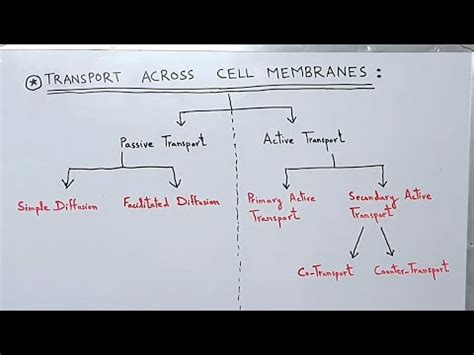 * TRANSPORT ACROSS CELL MEMBRANES :
Passive Transport
Active Transport
Simple Diffusion
Facilitated Diffusion
Primary Active
Transport
Secondary Active
Transport
Co-Transport
Counter-Transport